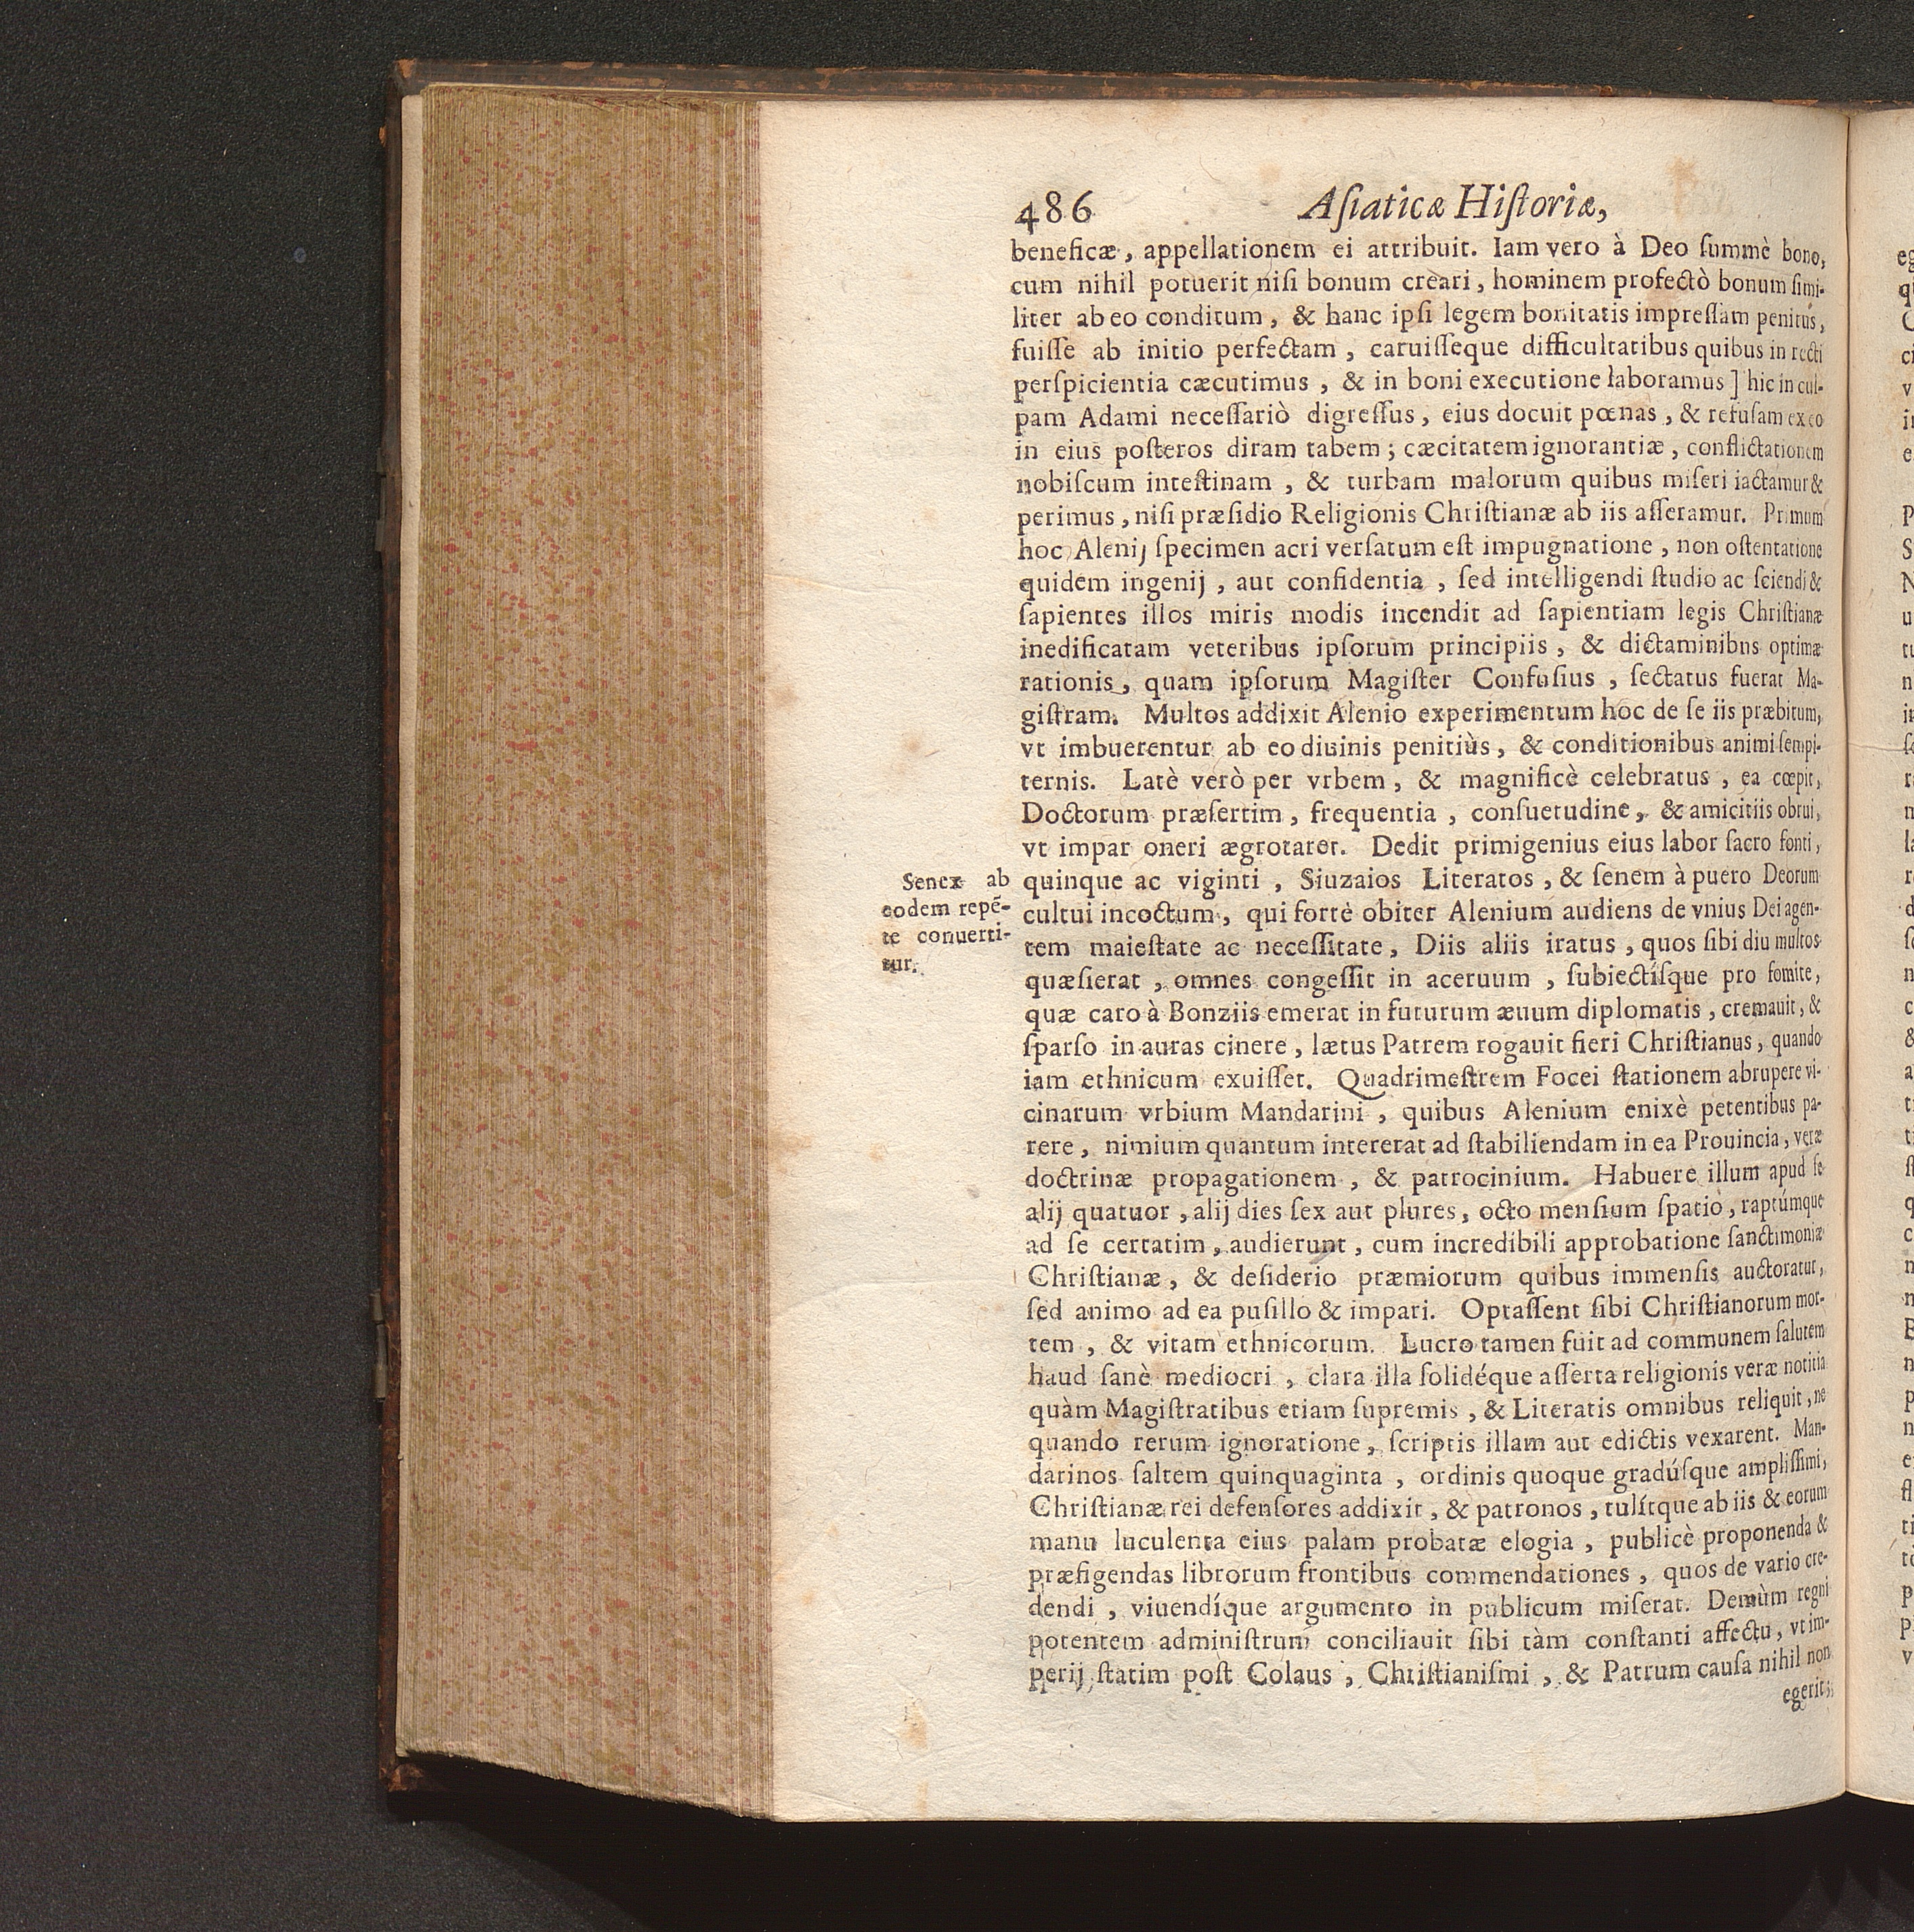 486 Aſiaticæ Hiſtoriæ,
beneficæ, appellationem ei attribuit. Iam vero à Deo ſummè bono,
cum nihil potuerit niſi bonum creari, hominem profectò bonum ſimi-
liter ab eo conditum, & hanc ipſi legem bonitatis impreſſam penitus,
fuiſſe ab initio perfectam, caruiſſeque difficultatibus quibus in recti
perſpicientia cæcutimus, & in boni executione laboramus] hic in cul-
pam Adami neceſſariò digreſſus, eius docuit pœnas, & refuſam ex eo
in eius poſteros diram tabem; cæcitatem ignorantiæ, conflictationem
nobiſcum inteſtinam, & turbam malorum quibus miſeri iactamur &
perimus, niſi præſidio Religionis Chriſtianæ ab iis aſſeramur. Primum
hoc Alenij ſpecimen acri verſatum eſt impugnatione, non oſtentatione
quidem ingenij, aut confidentia, ſed intelligendi ſtudio ac ſciendi &
ſapientes illos miris modis incendit ad ſapientiam legis Chriſtianæ
inedificatam veteribus ipſorum principiis, & dictaminibus optimæ
rationis, quam ipſorum Magiſter Confuſius, ſectatus fuerat Ma-
giſtram. Multos addixit Alenio experimentum hoc de ſe iis præbitum,
vt imbuerentur ab eo diuinis penitiùs, & conditionibus animi ſempi-
ternis. Latè verò per vrbem, & magnificè celebratus, ea cœpit,
Doctorum præſertim, frequentia, conſuetudine, & amicitiis obrui,
vt impar oneri ægrotaret. Dedit primigenius eius labor ſacro fonti,
quinque ac viginti, Siuzaios Literatos, & ſenem à puero Deorum
cultui incoctum, qui fortè obiter Alenium audiens de vnius Dei agen-
tem maieſtate ac neceſſitate, Diis aliis iratus, quos ſibi diu multos
quæſierat, omnes congeſſit in aceruum, ſubiectíſque pro fomite,
quæ caro à Bonziis emerat in futurum æuum diplomatis, cremauit, &
ſparſo in auras cinere, lætus Patrem rogauit fieri Chriſtianus, quando
iam ethnicum exuiſſet. Quadrimeſtrem Focei ſtationem abrupere vi-
cinarum vrbium Mandarini, quibus Alenium enixè petentibus pa-
rere, nimium quantum intererat ad ſtabiliendam in ea Prouincia, veræ
doctrinæ propagationem, & patrocinium. Habuere illum apud ſe
alij quatuor, alij dies ſex aut plures, octo menſium ſpatio, raptúmque
ad ſe certatim, audierunt, cum incredibili approbatione ſanctimoniæ
Chriſtianæ, & deſiderio præmiorum quibus immenſis auctoratur,
ſed animo ad ea puſillo & impari. Optaſſent ſibi Chriſtianorum mor-
tem, & vitam ethnicorum. Lucro tamen fuit ad communem ſalutem
haud ſanè mediocri, clara illa ſolidéque aſſerta religionis veræ notitia
quàm Magiſtratibus etiam ſupremis, & Literatis omnibus reliquit, ne
quando rerum ignoratione, ſcriptis illam aut edictis vexarent. Man-
darinos ſaltem quinquaginta, ordinis quoque gradúſque ampliſſimi,
Chriſtianæ rei defenſores addixit, & patronos, tulítque ab iis & eorum
manu luculenta eius palam probatæ elogia, publicè proponenda &
præfigendas librorum frontibus commendationes, quos de vario cre-
dendi, viuendíque argumento in publicum miſerat. Demùm regni
potentem adminiſtrum conciliauit ſibi tàm conſtanti affectu, vt im-
perij ſtatim poſt Colaus, Chriſtianiſmi, & Patrum cauſa nihil non
egerit;
Senex ab
eodem repẽ-
te conuerti-
tur.